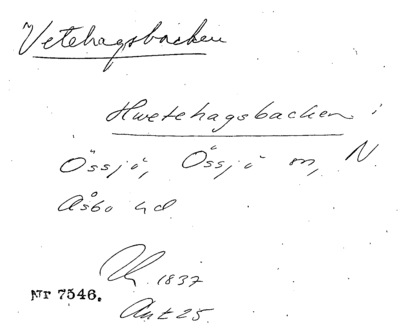 Vetehagsbacken
Hwetehagsbacken i
Össjö, Össjö sn, N.
Åsbo hd
1837
Nr 7546.
Ant 25.